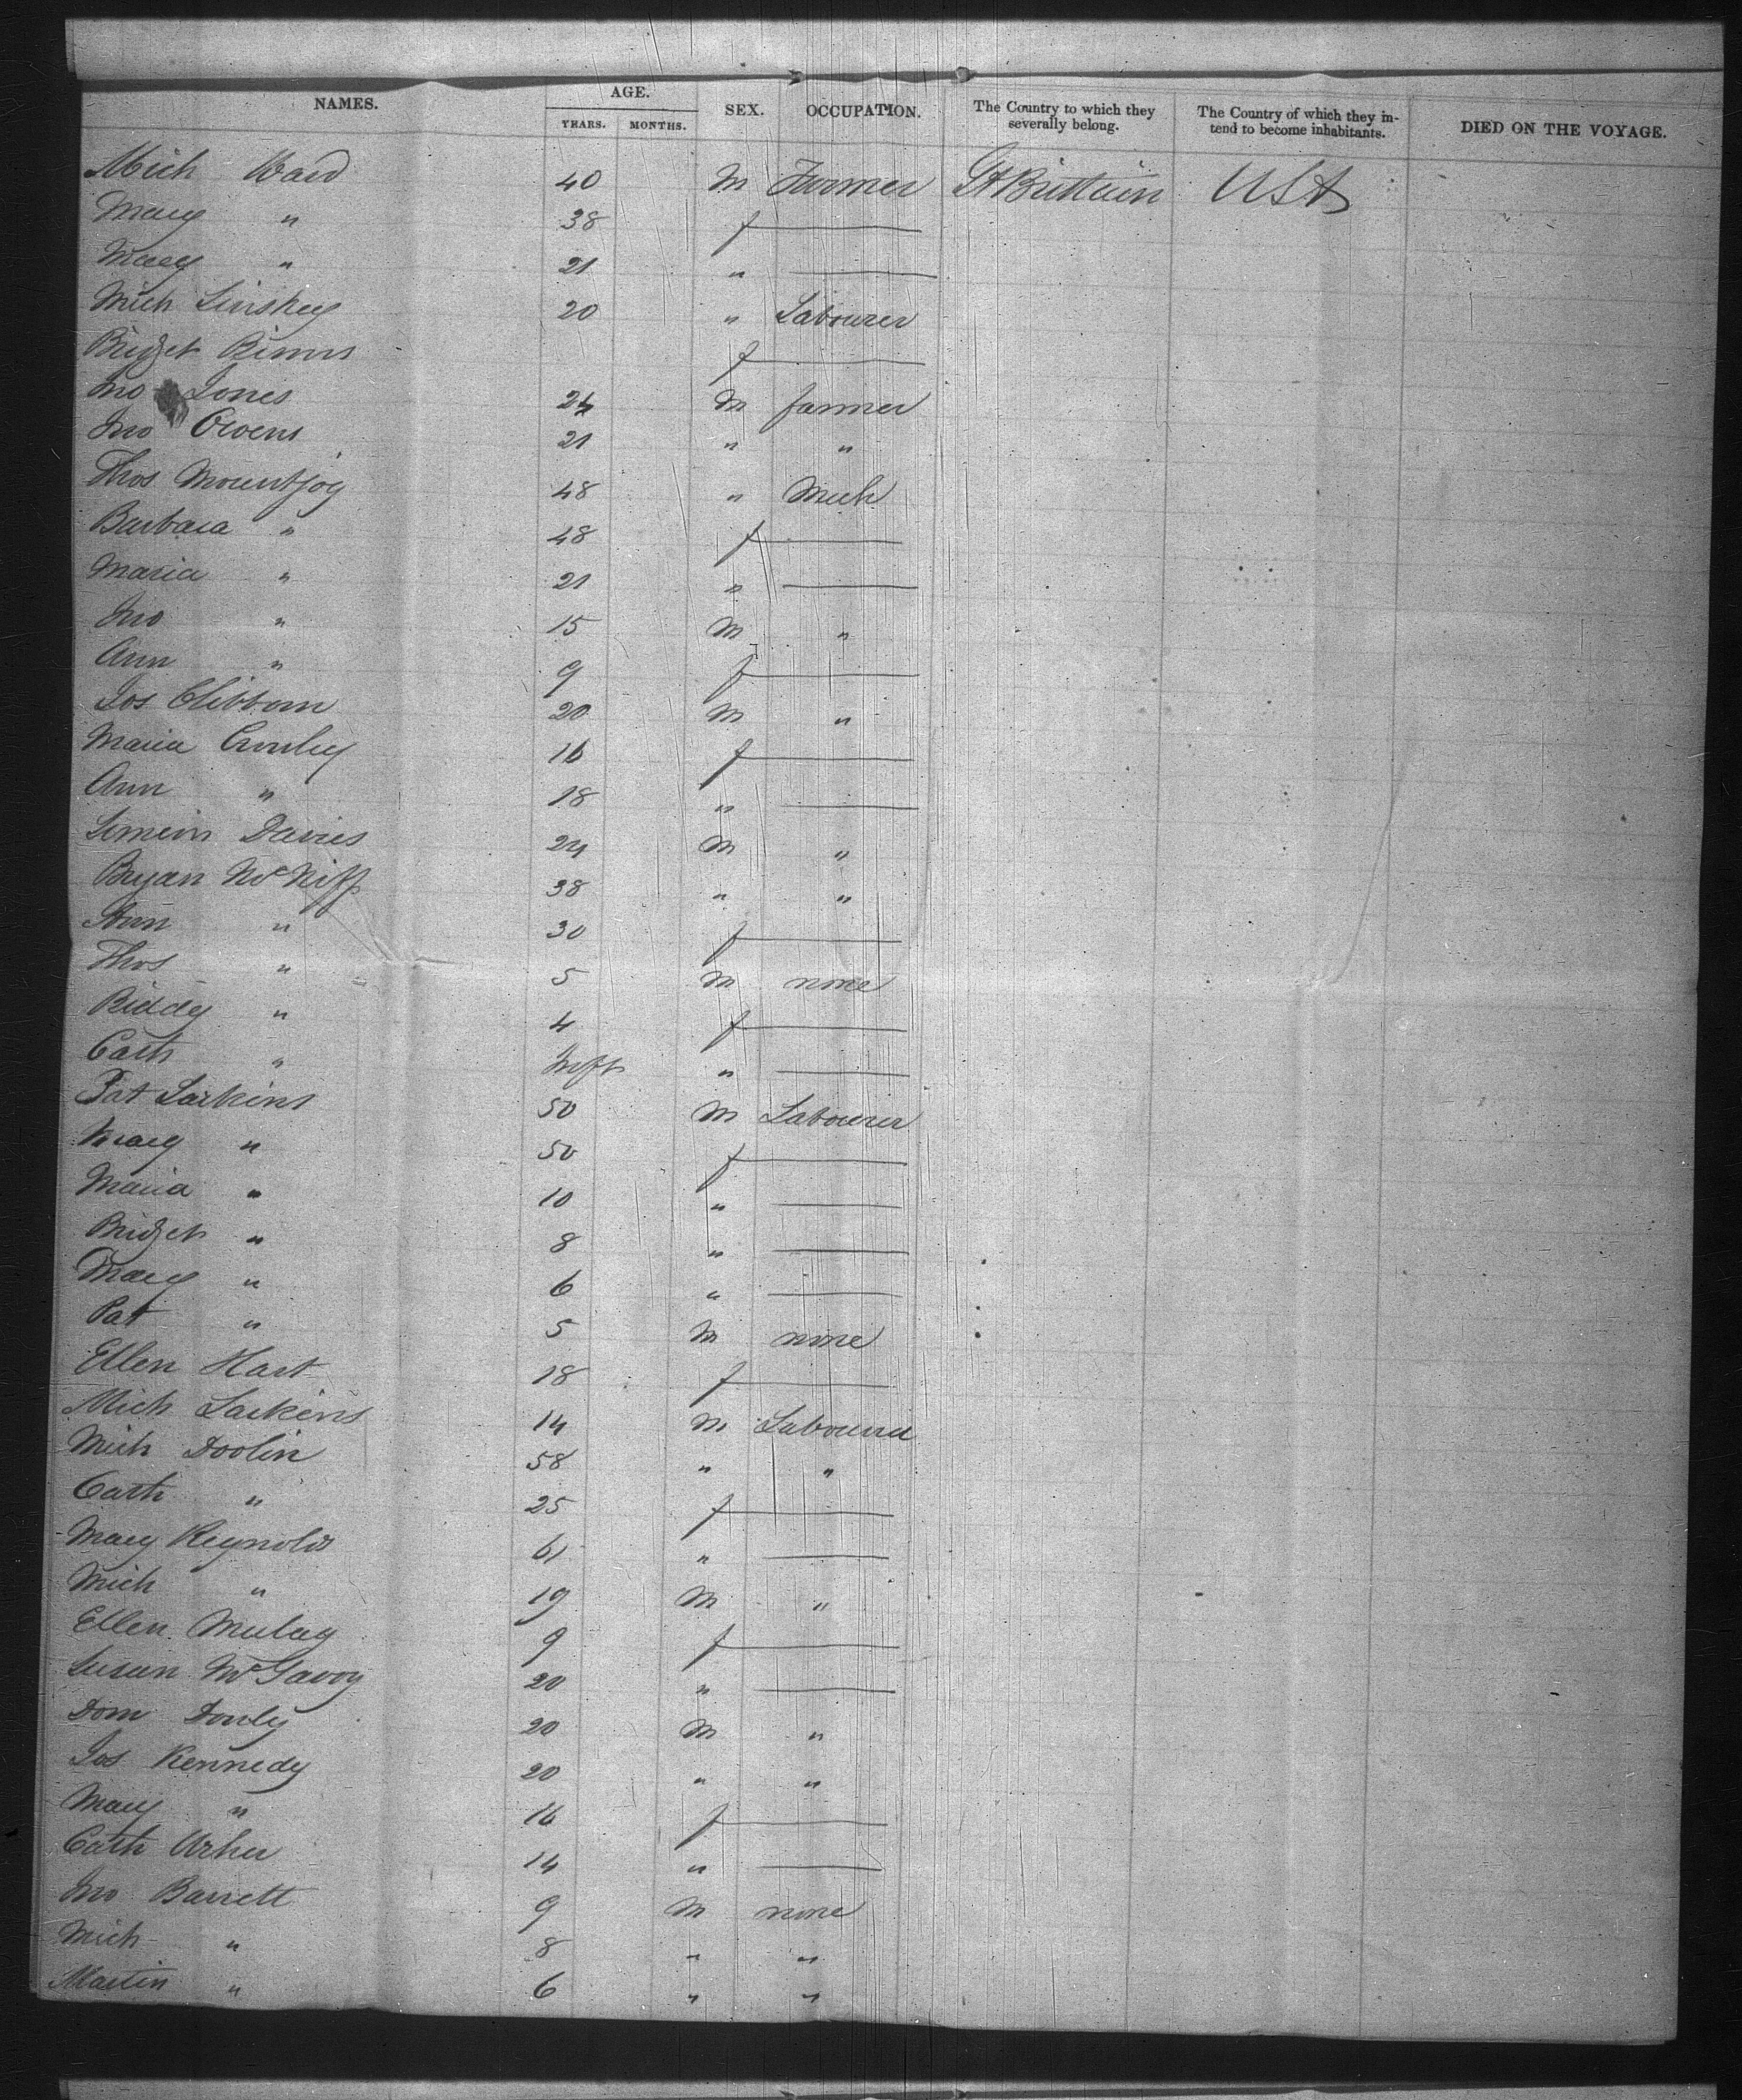 NAMES. AGE. SEX. OCCUPATION. The Country to which they severally belong. The Country of which they in-tend to become inhabitants. DIED ON THE VOYAGE.
YEARS. MONTHS.
Mich Ward 40 M Farmer Gt Brittain USA
Mary " 38 f
Mary " 21 "
Mich Linskey 20 " Labourer
Bridget f
Jno Jones 24 M farmer
Jno Owens 21 " "
Thos Mountjoy 48 " Mech
Barbara " 48 f
Maria " 21 "
Jno " 15 M "
Ann " 9 f
Jos Clibborn 20 M "
Maria 16 f
Ann " 18 "
Simeon Davies 24 M "
Bryan McNiff 38 " "
Ann " 30 f
Thos " 5 M none
Biddy " 4 f
Cath " Inft "
Pat Larkins 50 M Labourer
Mary " 50 f
Maria " 10 "
Bridget " 8 "
Mary " 6 "
Pat " 5 M none
Ellen Hart 18 f
Mich Larkins 14 M Labourer
Mich Doolin 58 " "
Cath " 25 f
Mary Reynolds 61 "
Mich " 19 M "
Ellen 9 f
Susan McGavoy 20 "
Dom Donly 20 M "
Jos Kennedy 20 " "
Mary " 16 f
Cath 14 "
Jno Barrett 9 M none
Mich " 8 " "
Martin " 6 " "